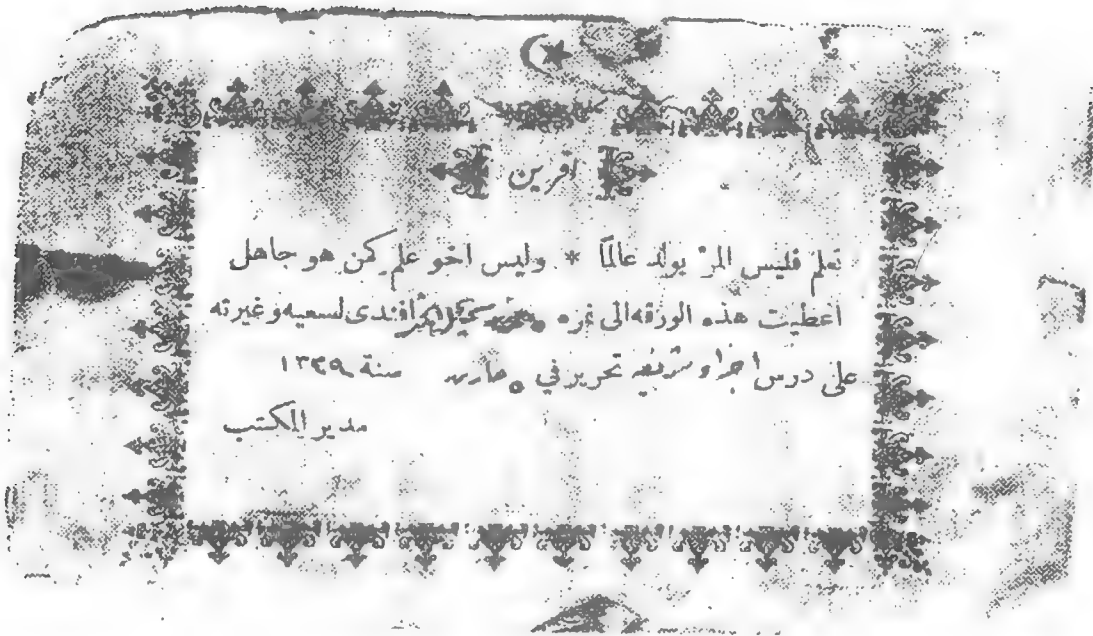 افرين
تعلم فليس المرء يولد عالمًا * وليس اخو علم كمن هو جاهل
اعطيت هذه الورقه الى نمره افندى لسعيه وغيرته
على درس اجزاء شريفه تحرير في ٥ مارس سنة ١٣٤٩
مدير المكتب